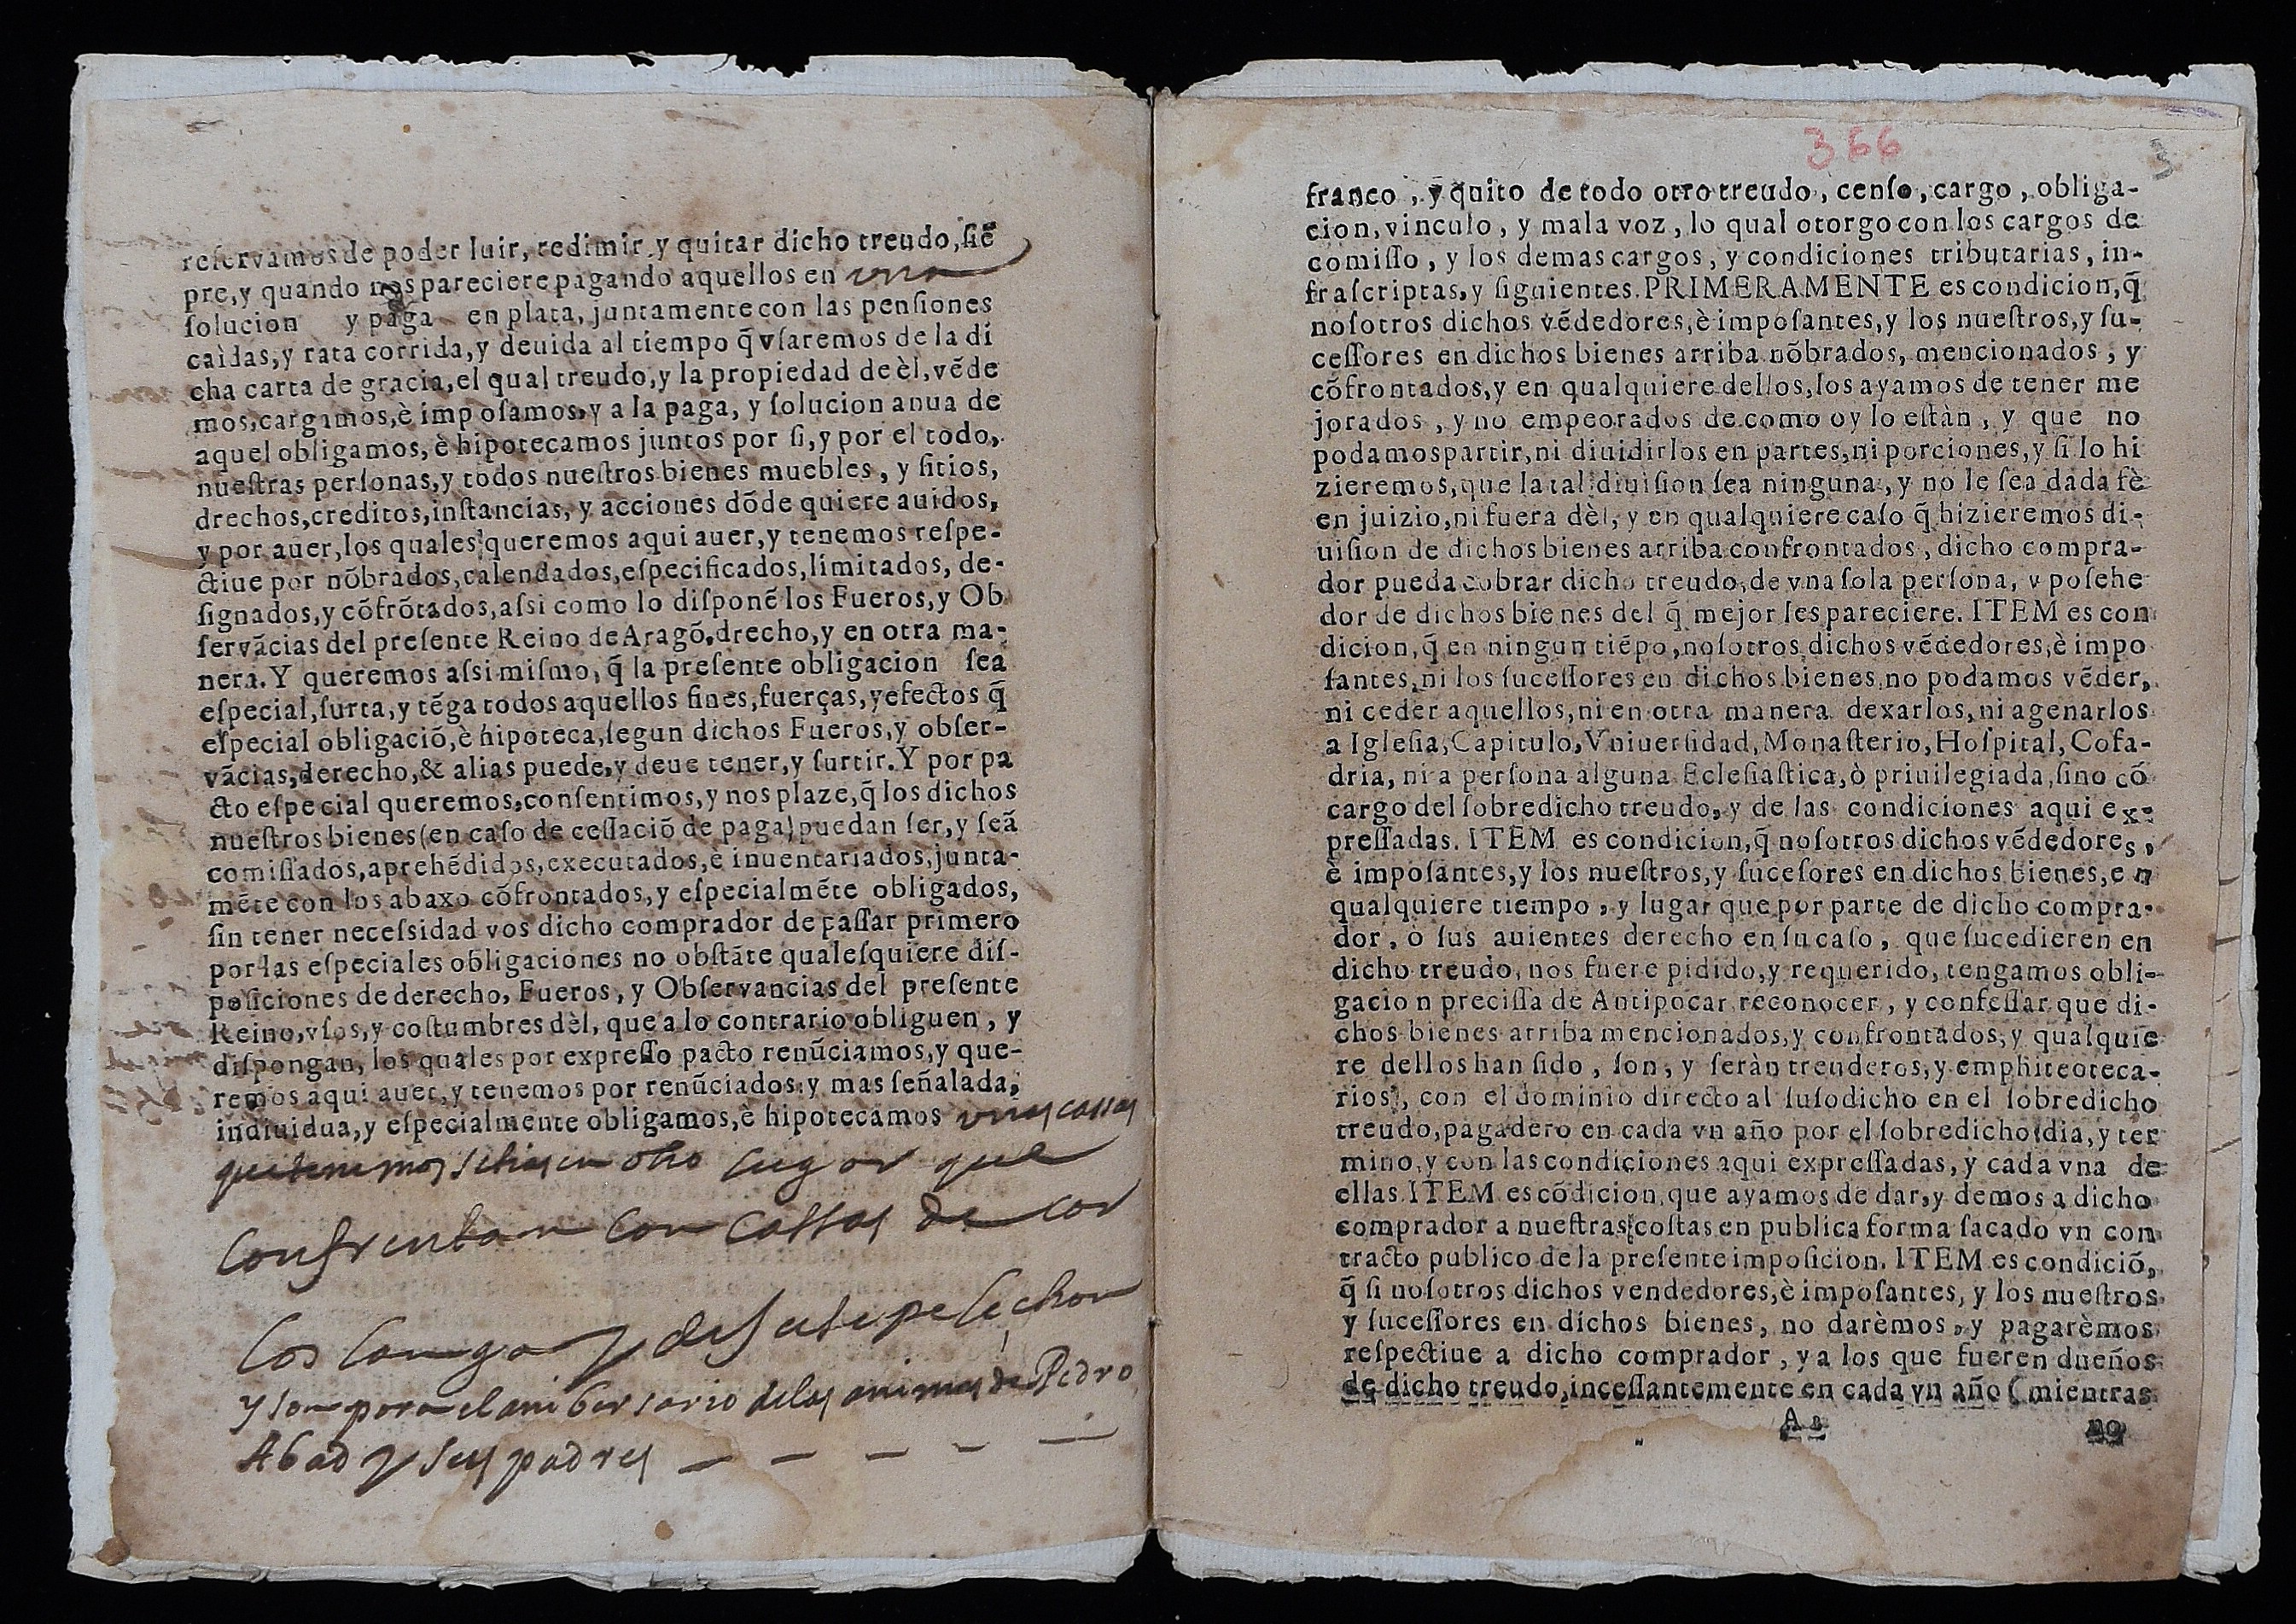 reſervamos de poder luir, redimir, y quitar dicho treudo, ſiē
pre, y quando nos pareciere pagando aquellos en vna
ſolucion y paga en plata, juntamente con las penſiones
caìdas, y rata corrida, y deuida al tiempo q̃ vſaremos de la di
cha carta de gracia, el qual treudo, y la propiedad de èl, vẽde
mos, cargamos, è impoſamos, y a la paga, y ſolucion anua de
aquel obligamos, è hipotecamos juntos por ſi, y por el todo,
nueſtras perſonas, y todos nueſtros bienes muebles, y ſitios,
drechos, creditos, inſtancias, y acciones dõde quiere auidos,
y por auer, los quales queremos aqui auer, y tenemos reſpe-
ctiue por nõbrados, calendados, eſpecificados, limitados, de-
ſignados, y cõfrõtados, aſsi como lo diſponẽ los Fueros, y Ob
ſervãcias del preſente Reino de Aragõ, drecho, y en otra ma-
nera. Y queremos aſsi miſmo, q̃ la preſente obligacion ſea
eſpecial, ſurta, y tẽga todos aquellos fines, fuerças, y efectos q̃
eſpecial obligaciõ, è hipoteca, ſegun dichos Fueros, y obſer-
vãcias, derecho, & alias puede, y deue tener, y ſurtir. Y por pa
cto eſpecial queremos, conſentimos, y nos plaze, q̃ los dichos
nueſtros bienes (en caſo de ceſſaciõ de paga) puedan ſer, y ſeã
comiſſados, aprehẽdidos, executados, è inuentariados, junta-
mẽte con los abaxo cõfrontados, y eſpecialmẽte obligados,
ſin tener neceſsidad vos dicho comprador de paſſar primero
por las eſpeciales obligaciones no obſtãte qualeſquiere diſ-
poſiciones de derecho, Fueros, y Obſervancias del preſente
Reino, vſos, y coſtumbres dèl, que a lo contrario obliguen, y
diſpongan, los quales por expreſſo pacto renũciamos, y que-
remos aqui auer, y tenemos por renũciados: y mas ſeñalada,
indiuidua, y eſpecialmente obligamos, è hipotecamos vnas cassas
que tenemos sitias en dho lugar que
confrentan con cassas de
y de
y son para el anibersario de las animas de Pedro
Abad y sus padres — — — — —
366
3
franco, y quito de todo otro treudo, cenſo, cargo, obliga-
cion, vinculo, y mala voz, lo qual otorgo con los cargos de
comiſſo, y los demas cargos, y condiciones tributarias, in-
fraſcriptas, y ſiguientes. PRIMERAMENTE es condicion, q̃
noſotros dichos vẽdedores, è impoſantes, y los nueſtros, y ſu-
ceſſores en dichos bienes arriba nõbrados, mencionados, y
cõfrontados, y en qualquiere dellos, los ayamos de tener me
jorados, y no empeorados de como oy lo eſtàn, y que no
podamos partir, ni diuidirlos en partes, ni porciones, y ſi lo hi
zieremos, que la tal diuiſion ſea ninguna, y no le ſea dada fè
en juizio, ni fuera dèl, y en qualquiere caſo q̃ hizieremos di-
uiſion de dichos bienes arriba confrontados, dicho compra-
dor pueda cobrar dicho treudo, de vna ſola perſona, v poſehe
dor de dichos bienes del q̃ mejor les pareciere. ITEM es con
dicion, q̃ en ningun tiẽpo, noſotros dichos vẽdedores, è impo
ſantes, ni los ſuceſſores en dichos bienes, no podamos vẽder,
ni ceder aquellos, ni en otra manera dexarlos, ni agenarlos
a Igleſia, Capitulo, Vniuerſidad, Monaſterio, Hoſpital, Cofa-
dria, ni a perſona alguna Ecleſiaſtica, ò priuilegiada, ſino cõ
cargo del ſobredicho treudo, y de las condiciones aqui ex-
preſſadas. ITEM es condicion, q̃ noſotros dichos vẽdedores,
è impoſantes, y los nueſtros, y ſuceſores en dichos bienes, en
qualquiere tiempo, y lugar que por parte de dicho compra-
dor, ò ſus auientes derecho en ſu caſo, que ſucedieren en
dicho treudo, nos fuere pidido, y requerido, tengamos obli-
gacion preciſſa de Antipocar reconocer, y confeſſar que di-
chos bienes arriba mencionados, y confrontados, y qualquie
re dellos han ſido, ſon, y ſeràn treuderos, y emphiteoteca-
rios, con el dominio directo al ſuſodicho en el ſobredicho
treudo, pagadero en cada vn año por el ſobredicho dia, y ter
mino, y con las condiciones aqui expreſſadas, y cada vna de
ellas. ITEM es cõdicion, que ayamos de dar, y demos a dicho
comprador a nueſtras coſtas en publica forma ſacado vn con
tracto publico de la preſente impoſicion. ITEM es condiciõ,
q̃ ſi noſotros dichos vendedores, è impoſantes, y los nueſtros
y ſuceſſores en dichos bienes, no darèmos, y pagarèmos
reſpectiue a dicho comprador, y a los que fueren dueños
de dicho treudo, inceſſantemente en cada vn año (mientras
no